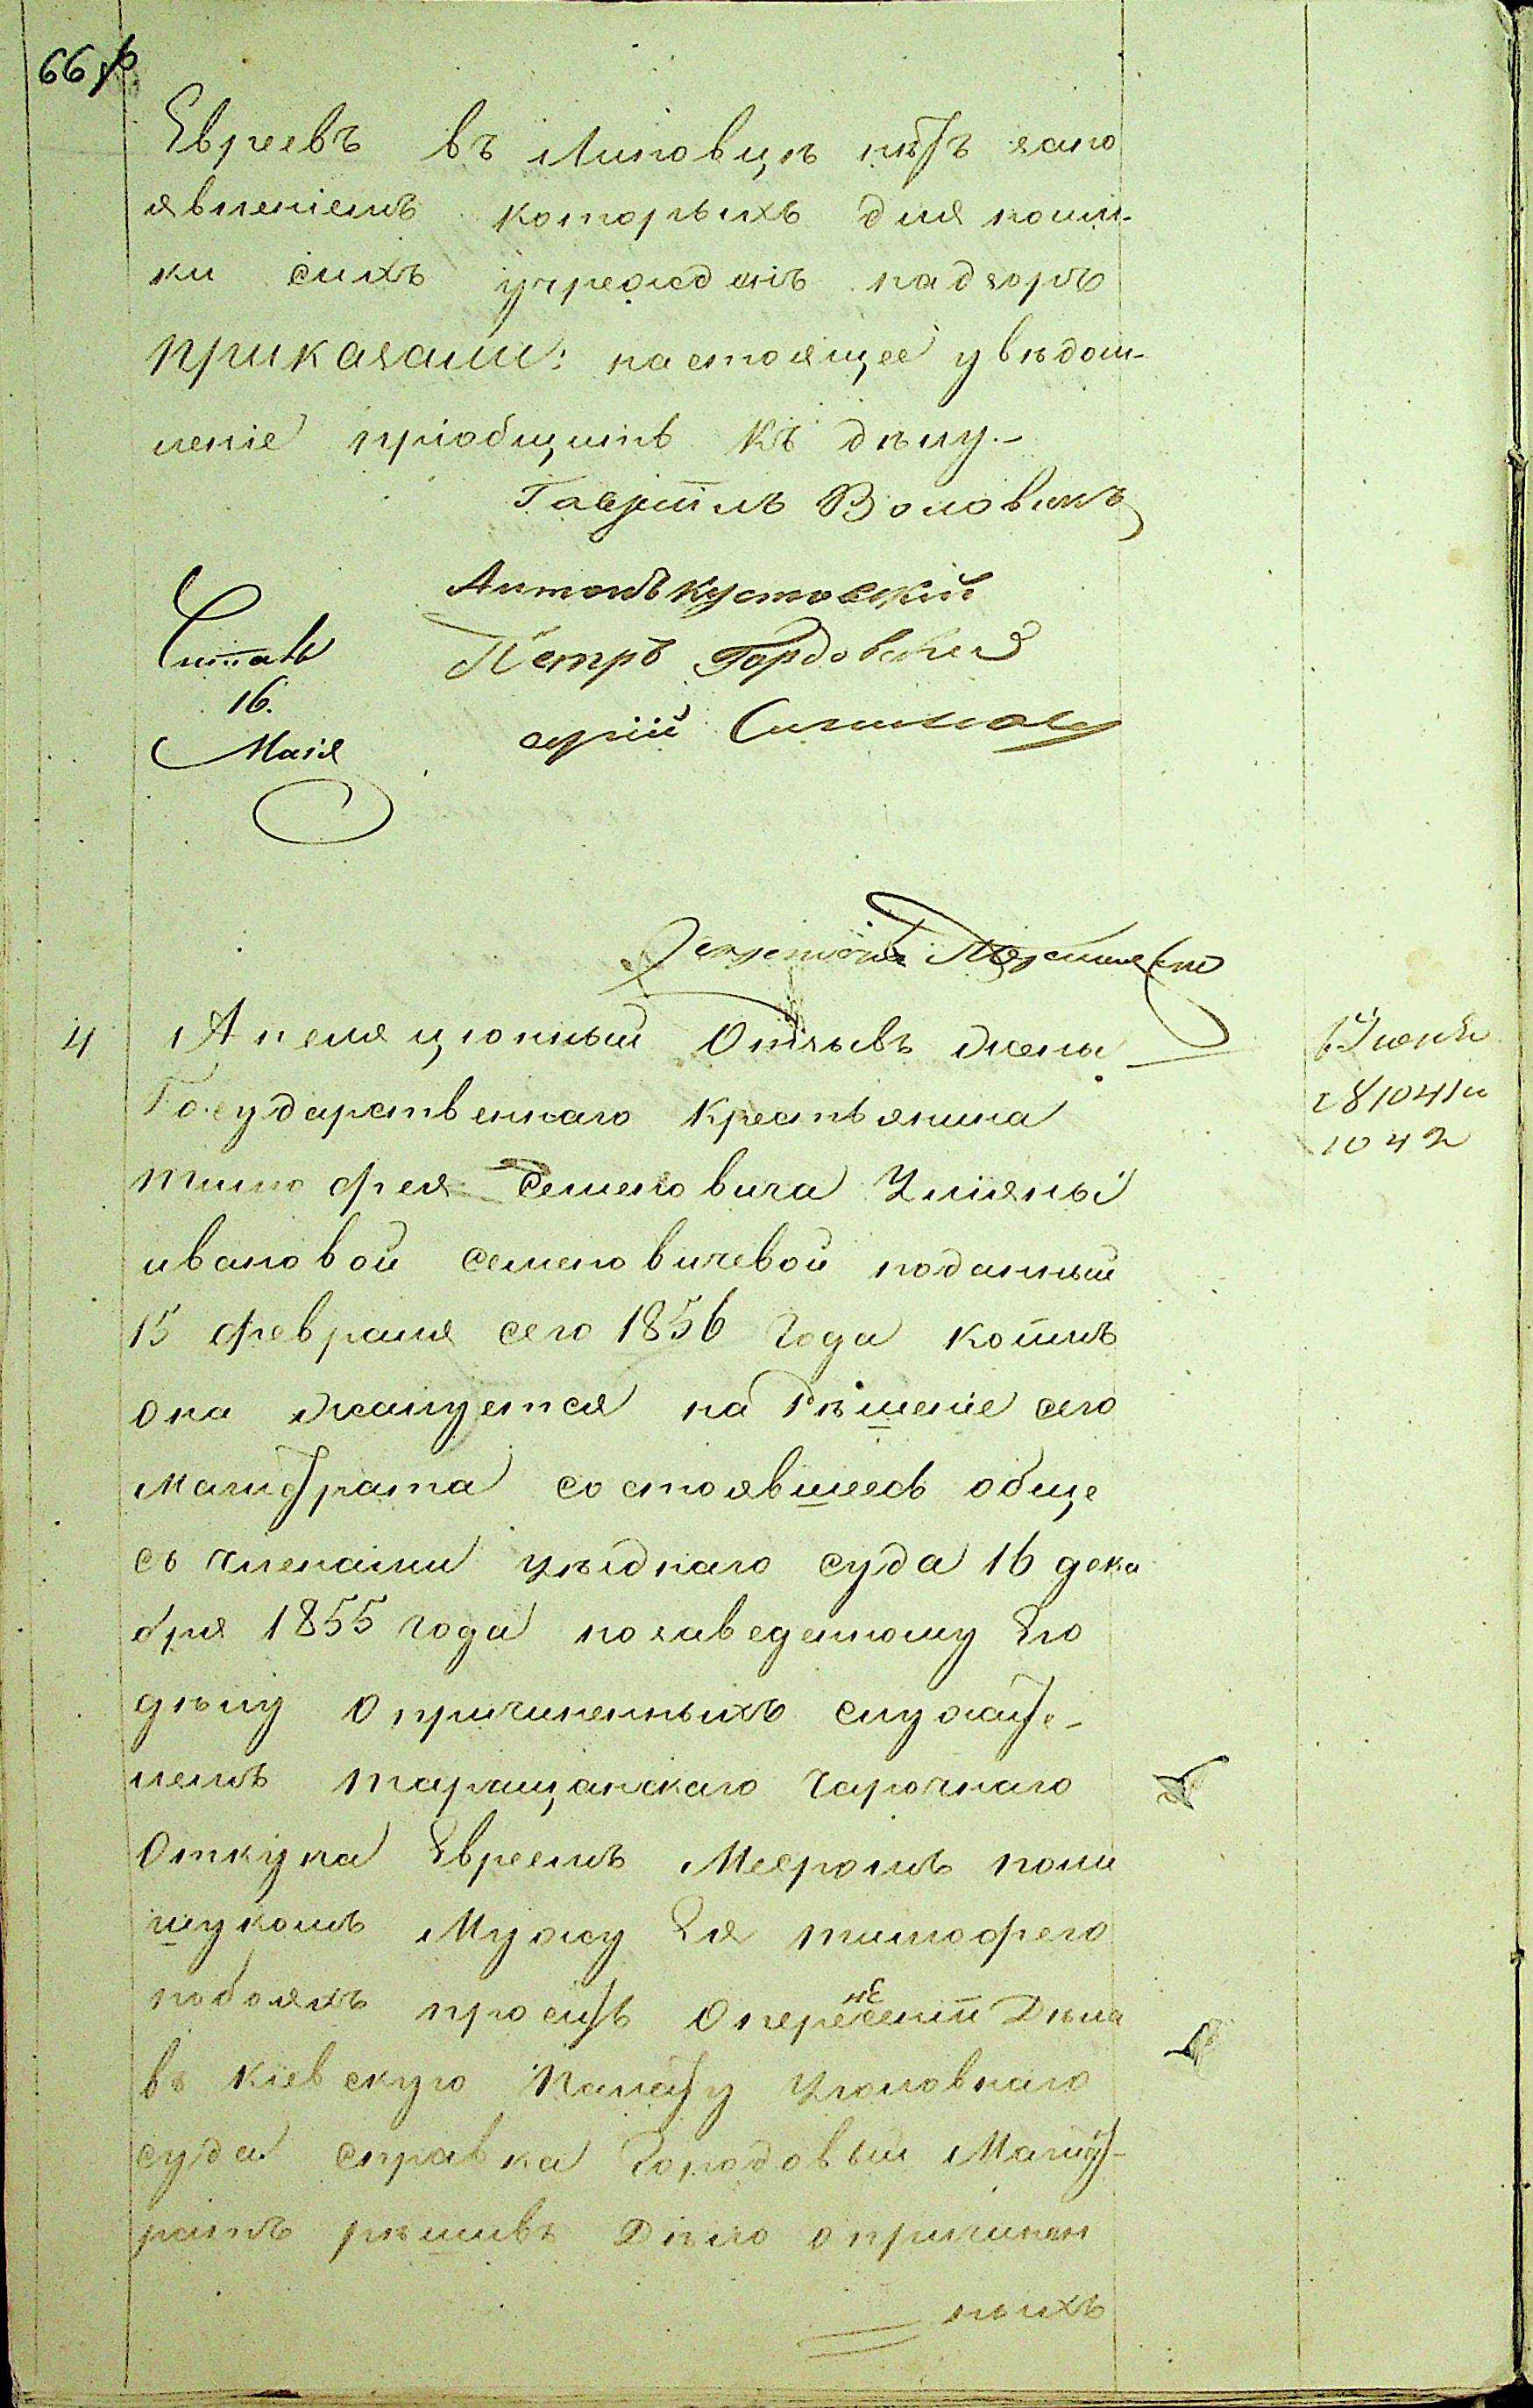 66
Евреевъ въ Липовцѣ нѣтъ запо
явленіемъ которыхъ для поим-
ки сихъ учрежденъ надзоръ
приказали: настоящее увѣдом-
леніе пріобщить къ дѣлу.-
Гавріилъ Воловикъ
Антонъ Кустовскій
Читалъ Петръ Гордовскій
16.
Маія
4 Апеляціонный Отзывъ жены
Государственнаго Крестьянина
тимофея Семеновича Уліяны
ивановой семеновичевой поданный
15 февраля сего 1856 года коимъ
она жалуется на Рѣшеніе сего
магистрата состоявшеесь обще
съ членами уѣзднаго суда 16 дека
бря 1855 года позаведенному Его
дѣлу Опричиненныхъ служите-
лемъ таращанскаго чарочнаго
Откупа Евреемъ Мееромъ поли
щукомъ Мужу Ея тимофею
побояхъ проситъ Оперенесеніи Дѣла
въ Кіевскую Палату Уголовнаго
суда справка Городовый Магист-
ратъ рѣшивъ Дѣло опричинен
ныхъ
Июня
1041 и
1042